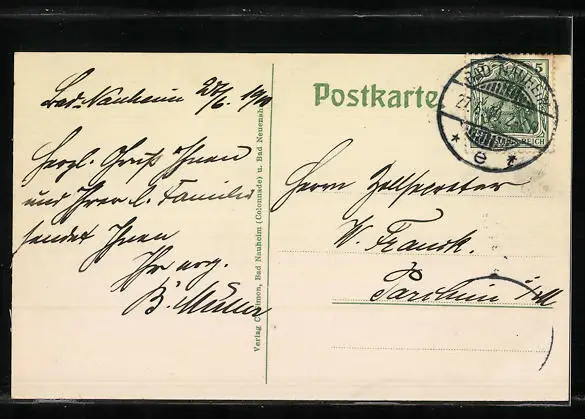 Bad-Nauheim 27/6. 1910
Herzl. Gruß Ihnen
und Ihrer l. Familie
sendet Ihnen
Ihr erg.
B. Müller
Verlag C. Simon, Bad Nauheim (Colonnade) u. Bad Neuenahr
Postkarte
5
BAD-NAUHEIM
27.
* e *
REICH
Herrn Zollsecretär
W. Franck.
Parchim i/M